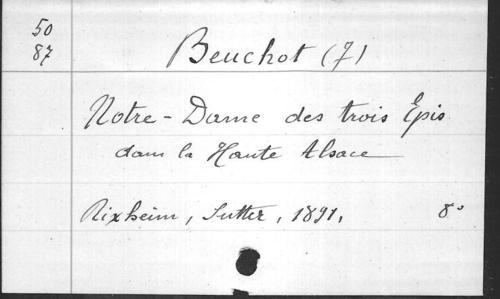 50
87
Beuchot (J)
Notre-Dame des trois Epis
dans la Haute Alsace
Rixheim, Sutter, 1891. 8°